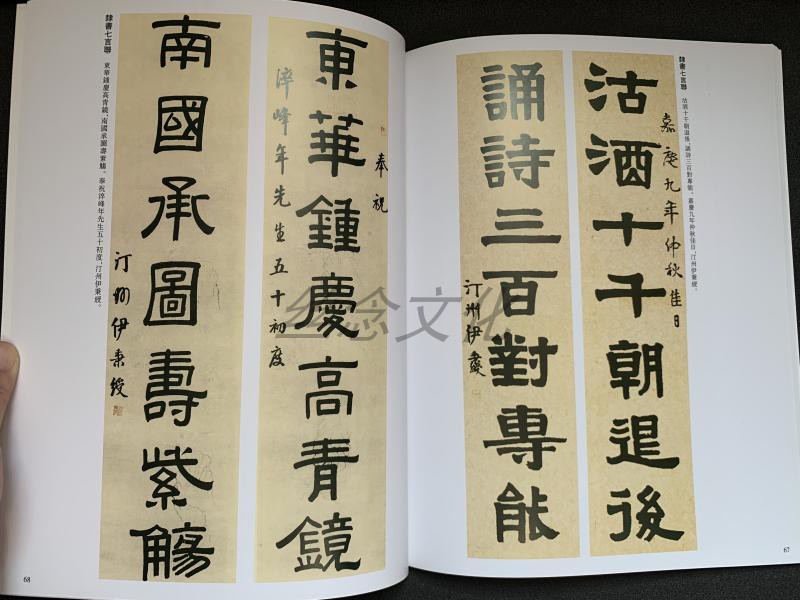 隸書七言聯 沽酒十千朝退後,誦詩三百對專能。嘉慶九年仲秋佳日,汀州伊秉綬。
沽酒十千朝退後
嘉慶九年仲秋佳日
誦詩三百對專能
汀州伊秉綬
67
東華鍾慶高青鏡
奉祝
淬峰年先生五十初度
南國承圖壽紫觴
汀州伊秉綬
隸書七言聯 東華鍾慶高青鏡,南國承圖壽紫觴。奉祝淬峰年先生五十初度,汀州伊秉綬。
68
念文化